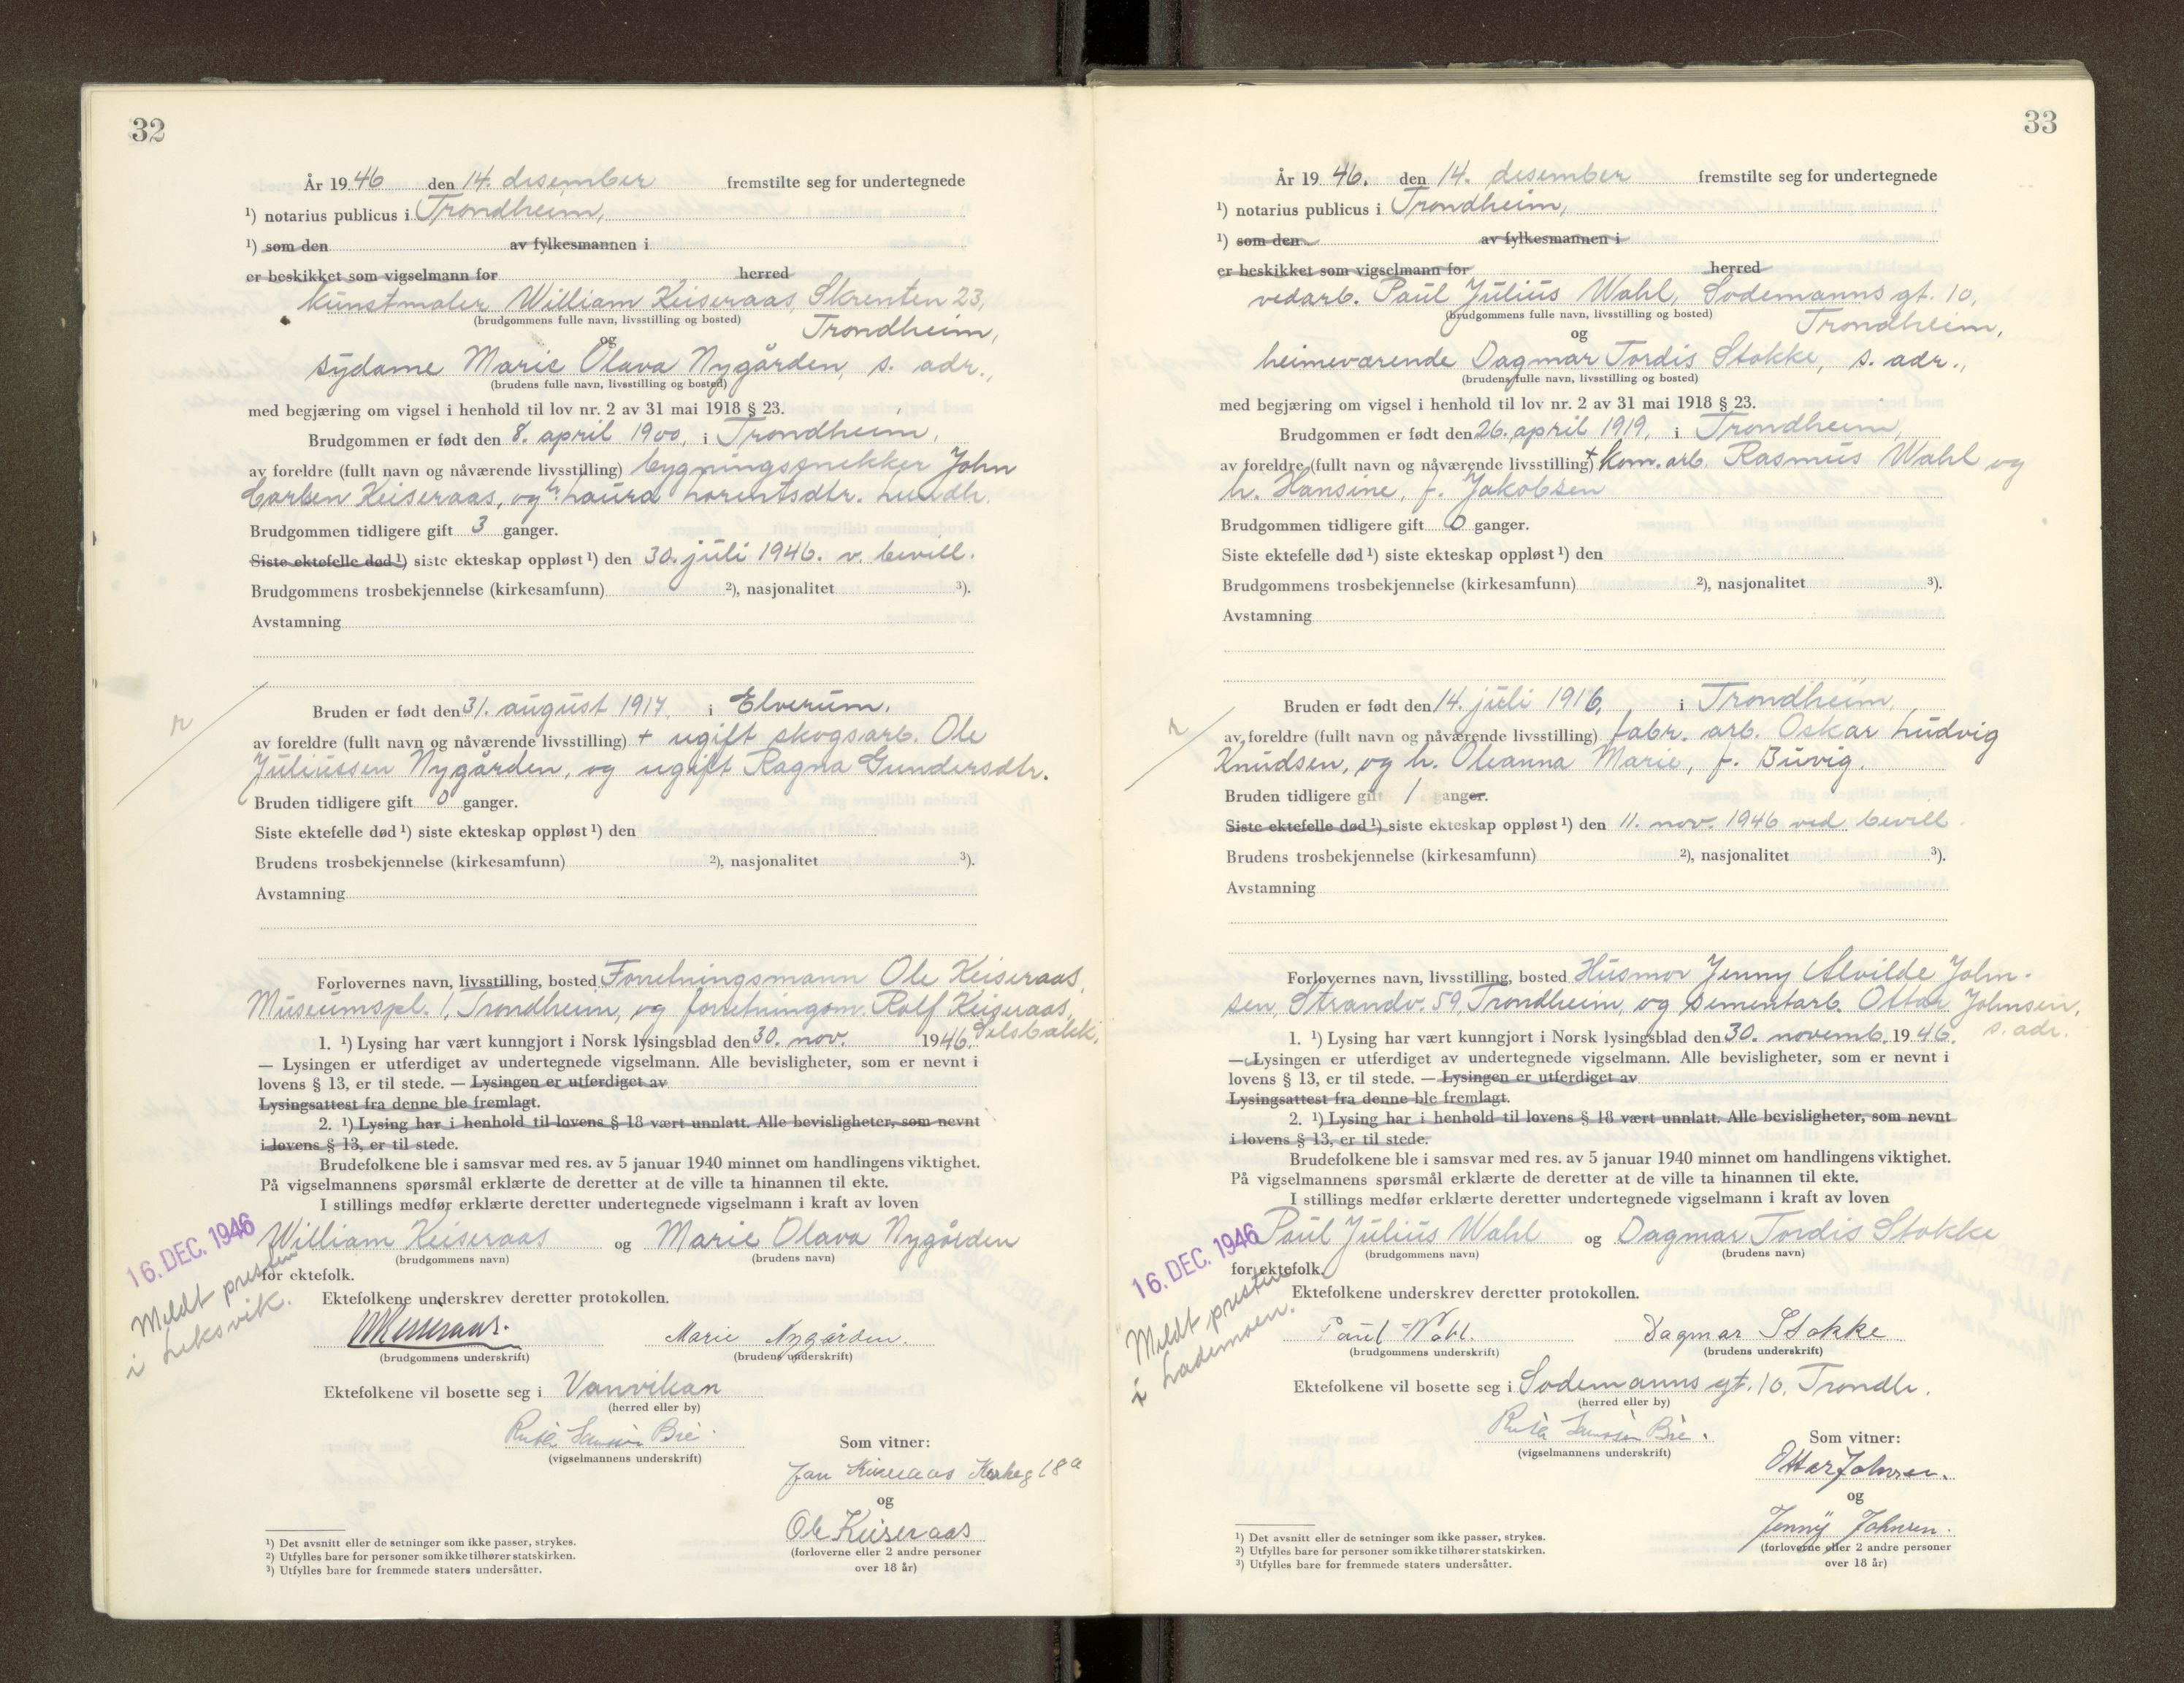 32
År 1946 den 14. desember fremstilte seg for undertegnede
¹) notarius publicus i Trondheim,
¹) som den av fylkesmannen i
er beskikket som vigselmann for herred
kunstmaler William Keiseraas, Skrenten 23,
(brudgommens fulle navn, livsstilling og bosted) Trondheim,
og
sydame Marie Olava Nygården, s. adr.,
(brudens fulle navn, livsstilling og bosted)
med begjæring om vigsel i henhold til lov nr. 2 av 31 mai 1918 § 23.
Brudgommen er født den 8. april 1900, i Trondheim,
av foreldre (fullt navn og nåværende livsstilling) bygningssnekker John
Carlsen Keiseraas, og h. Laura Lorentsdtr. Lundh.
Brudgommen tidligere gift 3 ganger.
Siste ektefelle død ¹) siste ekteskap oppløst ¹) den 30. juli 1946. v. bevill.
Brudgommens trosbekjennelse (kirkesamfunn) ²), nasjonalitet ³).
Avstamning
r
Bruden er født den 31. august 1917, i Elverum.
av foreldre (fullt navn og nåværende livsstilling) + ugift skogsarb. Ole
Juliussen Nygården, og ugift Ragna Gundersdtr.
Bruden tidligere gift 0 ganger.
Siste ektefelle død ¹) siste ekteskap oppløst ¹) den
Brudens trosbekjennelse (kirkesamfunn) ²), nasjonalitet ³).
Avstamning
Forlovernes navn, livsstilling, bosted Forretningsmann Ole Keiseraas,
Museumspl. 1, Trondheim, og forretningsm. Rolf Keiseraas,
Selsbakk,
1. ¹) Lysing har vært kunngjort i Norsk lysingsblad den 30. nov. 1946.
— Lysingen er utferdiget av undertegnede vigselmann. Alle bevisligheter, som er nevnt i
lovens § 13, er til stede. — Lysingen er utferdiget av
Lysingsattest fra denne ble fremlagt.
2. ¹) Lysing har i henhold til lovens § 18 vært unnlatt. Alle bevisligheter, som nevnt
i lovens § 13, er til stede.
Brudefolkene ble i samsvar med res. av 5 januar 1940 minnet om handlingens viktighet.
På vigselmannens spørsmål erklærte de deretter at de ville ta hinannen til ekte.
I stillings medfør erklærte deretter undertegnede vigselmann i kraft av loven
William Keiseraas og Marie Olava Nygården
(brudgommens navn) (brudens navn)
for ektefolk.
16. DEC. 1946
Meldt presten
i Leksvik.
Ektefolkene underskrev deretter protokollen.
WKeiseraas. Marie Nygården.
(brudgommens underskrift) (brudens underskrift)
Ektefolkene vil bosette seg i Vanvikan
(herred eller by)
Bie
(vigselmannens underskrift)
Som vitner:
Jan Keiseraas 18a
og
Ole Keiseraas
(forloverne eller 2 andre personer
over 18 år)
¹) Det avsnitt eller de setninger som ikke passer, strykes.
²) Utfylles bare for personer som ikke tilhører statskirken.
³) Utfylles bare for fremmede staters undersåtter.
33
År 1946. den 14. desember fremstilte seg for undertegnede
¹) notarius publicus i Trondheim,
¹) som den av fylkesmannen i
er beskikket som vigselmann for herred
vedarb. Paul Julius Wahl, Sodemanns gt. 10,
(brudgommens fulle navn, livsstilling og bosted) Trondheim,
og
heimeværende Dagmar Tordis Stokke, s. adr.,
(brudens fulle navn, livsstilling og bosted)
med begjæring om vigsel i henhold til lov nr. 2 av 31 mai 1918 § 23.
Brudgommen er født den 26. april 1919, i Trondheim,
av foreldre (fullt navn og nåværende livsstilling) + kom. arb. Rasmus Wahl og
h. Hansine, f. Jakobsen
Brudgommen tidligere gift 0 ganger.
Siste ektefelle død ¹) siste ekteskap oppløst ¹) den
Brudgommens trosbekjennelse (kirkesamfunn) ²), nasjonalitet ³).
Avstamning
r
Bruden er født den 14. juli 1916, i Trondheim,
av foreldre (fullt navn og nåværende livsstilling) fabr. arb. Oskar Ludvig
Knudsen, og h. Oleanna Marie, f. Buvig.
Bruden tidligere gift 1 ganger.
Siste ektefelle død ¹) siste ekteskap oppløst ¹) den 11. nov. 1946 ved bevill.
Brudens trosbekjennelse (kirkesamfunn) ²), nasjonalitet ³).
Avstamning
Forlovernes navn, livsstilling, bosted Husmor Jenny Alvilde John-
sen, Strandv. 59, Trondheim, og sementarb. Ottar Johnsen,
s. adr.
1. ¹) Lysing har vært kunngjort i Norsk lysingsblad den 30. novemb. 1946.
— Lysingen er utferdiget av undertegnede vigselmann. Alle bevisligheter, som er nevnt i
lovens § 13, er til stede. — Lysingen er utferdiget av
Lysingsattest fra denne ble fremlagt.
2. ¹) Lysing har i henhold til lovens § 18 vært unnlatt. Alle bevisligheter, som nevnt
i lovens § 13, er til stede.
Brudefolkene ble i samsvar med res. av 5 januar 1940 minnet om handlingens viktighet.
På vigselmannens spørsmål erklærte de deretter at de ville ta hinannen til ekte.
I stillings medfør erklærte deretter undertegnede vigselmann i kraft av loven
Paul Julius Wahl og Dagmar Tordis Stokke
(brudgommens navn) (brudens navn)
for ektefolk.
16. DEC. 1946
Meldt presten
i Lademoen.
Ektefolkene underskrev deretter protokollen.
Paul Wahl. Dagmar Stokke
(brudgommens underskrift) (brudens underskrift)
Ektefolkene vil bosette seg i Sodemanns gt. 10, Trondh.
(herred eller by)
Bie.
(vigselmannens underskrift)
Som vitner:
Ottar Johnsen.
og
Jenny Johnsen.
(forloverne eller 2 andre personer
over 18 år)
¹) Det avsnitt eller de setninger som ikke passer, strykes.
²) Utfylles bare for personer som ikke tilhører statskirken.
³) Utfylles bare for fremmede staters undersåtter.